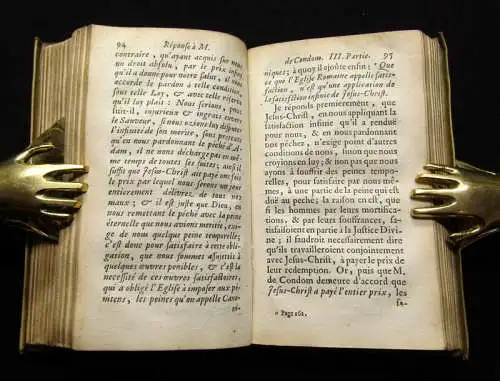 94 Réponse à M.
contraire, qu'ayant acquis sur nous
un droit absolu, par le prix infiny
qu'il a donné pour notre salut, il nous
accorde le pardon à telle condition,
sous telle Loy, & avec telle reserve
qu'il luy plait: Nous serions, pour-
suit-il, injurieux & ingrats envers
le Sauveur, si nous osions luy disputer
l'infinité de son merite, sous pretexte
qu'en nous pardonnant le peché d'A-
dam, il ne nous décharge pas en mê-
me temps de toutes ses suites; aussi il
suffit que Jesus-Christ ait payé un fois
le prix par lequel nous serons un jour
entierement délivrez de tous nos
maux; & il est juste que Dieu, en
nous remettant le péché avec la peine
éternelle que nous avions meritée, exi-
ge de nous quelque peine temporelle;
c'est donc pour satisfaire à cette obli-
gation, que nous sommes assujettis à
quelques œuvres penibles, & c'est la
necessité de ces œuvres satisfactoires,
qui a obligé l'Eglise à imposer aux pe-
nitens, les peines qu'on appelle Cano-
ni-
de Condom. III. Partie. 95
niques; à quoy il ajoûte enfin: * Que
ce que l'Eglise Romaine appelle satis-
faction, n'est qu'une application de
la satisfaction infinie de Jesus-Christ.
Je répons premierement, que
Jesus-Christ, en nous appliquant la
satisfaction infinie qu'il a renduë
pour nous, & en nous pardonnant
nos péchez, n'exige point d'autres
conditions de nous, sinon que nous
croyions en luy; & non pas que nous
ayons à souffrir des peines tempo-
relles, pour satisfaire par nous mê-
mes, à une partie de la peine qui est
dûë au peché; la raison en est, que
si les hommes par leurs mortifica-
tions, & par leurs souffrances, sa-
tisfaisoient en partie à la Justice Divi-
ne; il faudroit necessairement dire
qu'ils travailleroient conjointement
avec Jesus-Christ, à payer le prix de
leur redemption. Or, puis que M.
de Condom demeure d'accord que
Jesus-Christ a payé l'entier prix, les
sa-
* Page 162.